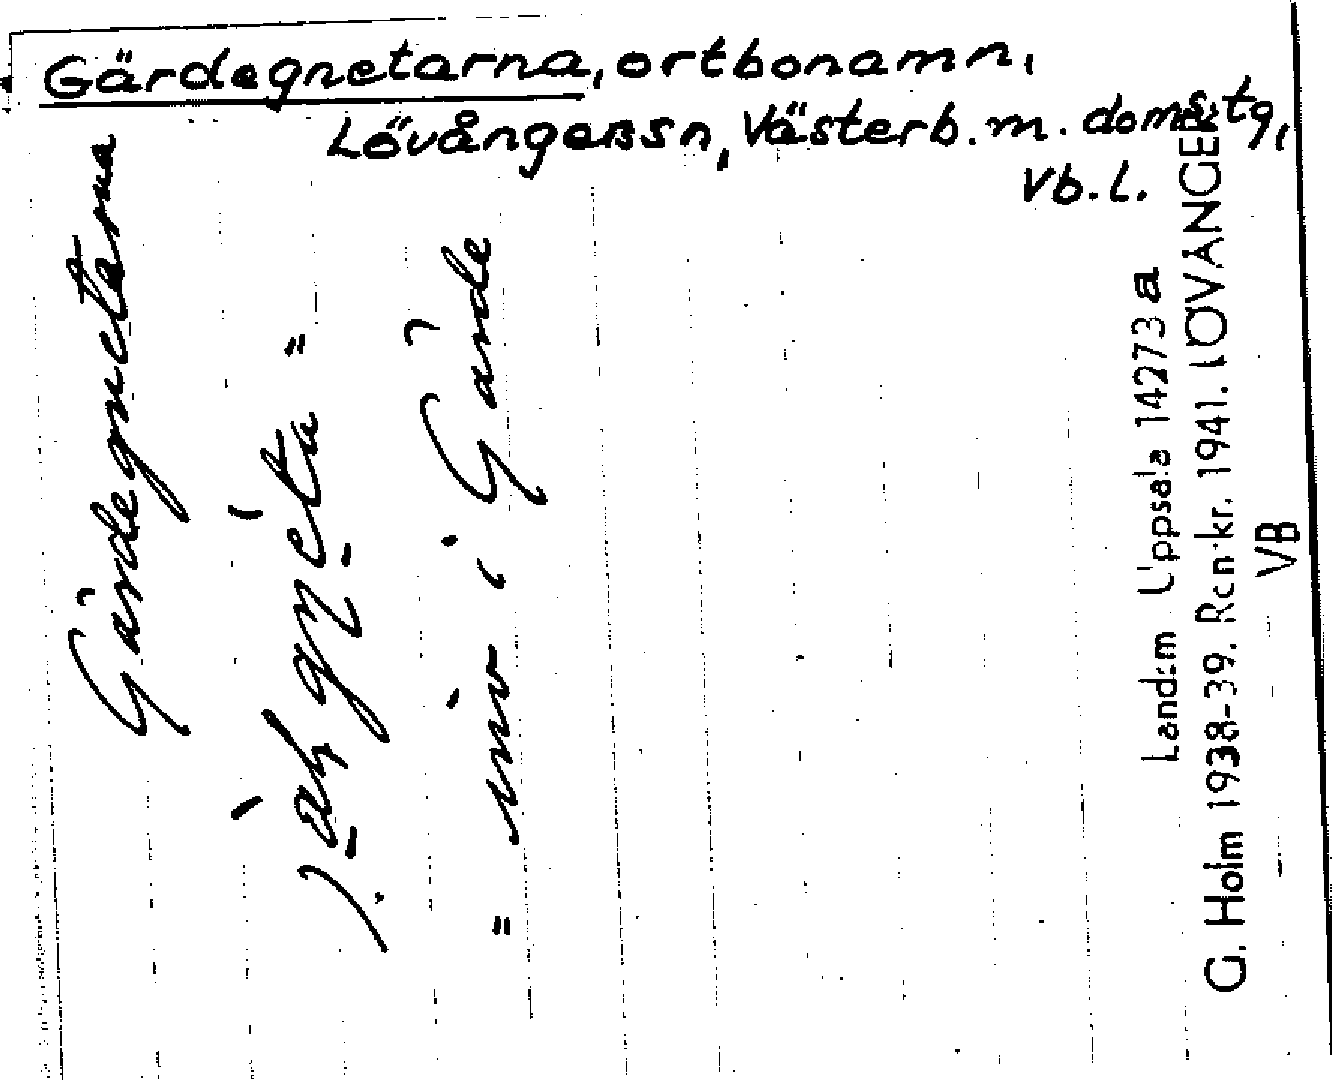 Gärdegnetarna, ortbonamn,
Lövångers sn, Västerb. m. doms. tg,
Vb. l.
Gärdegnetarna
" mv i Gärde
Landsm Uppsala 14273 a
G. Holm 1938-39. Ren-kr. 1941. LÖVÅNGER
VB